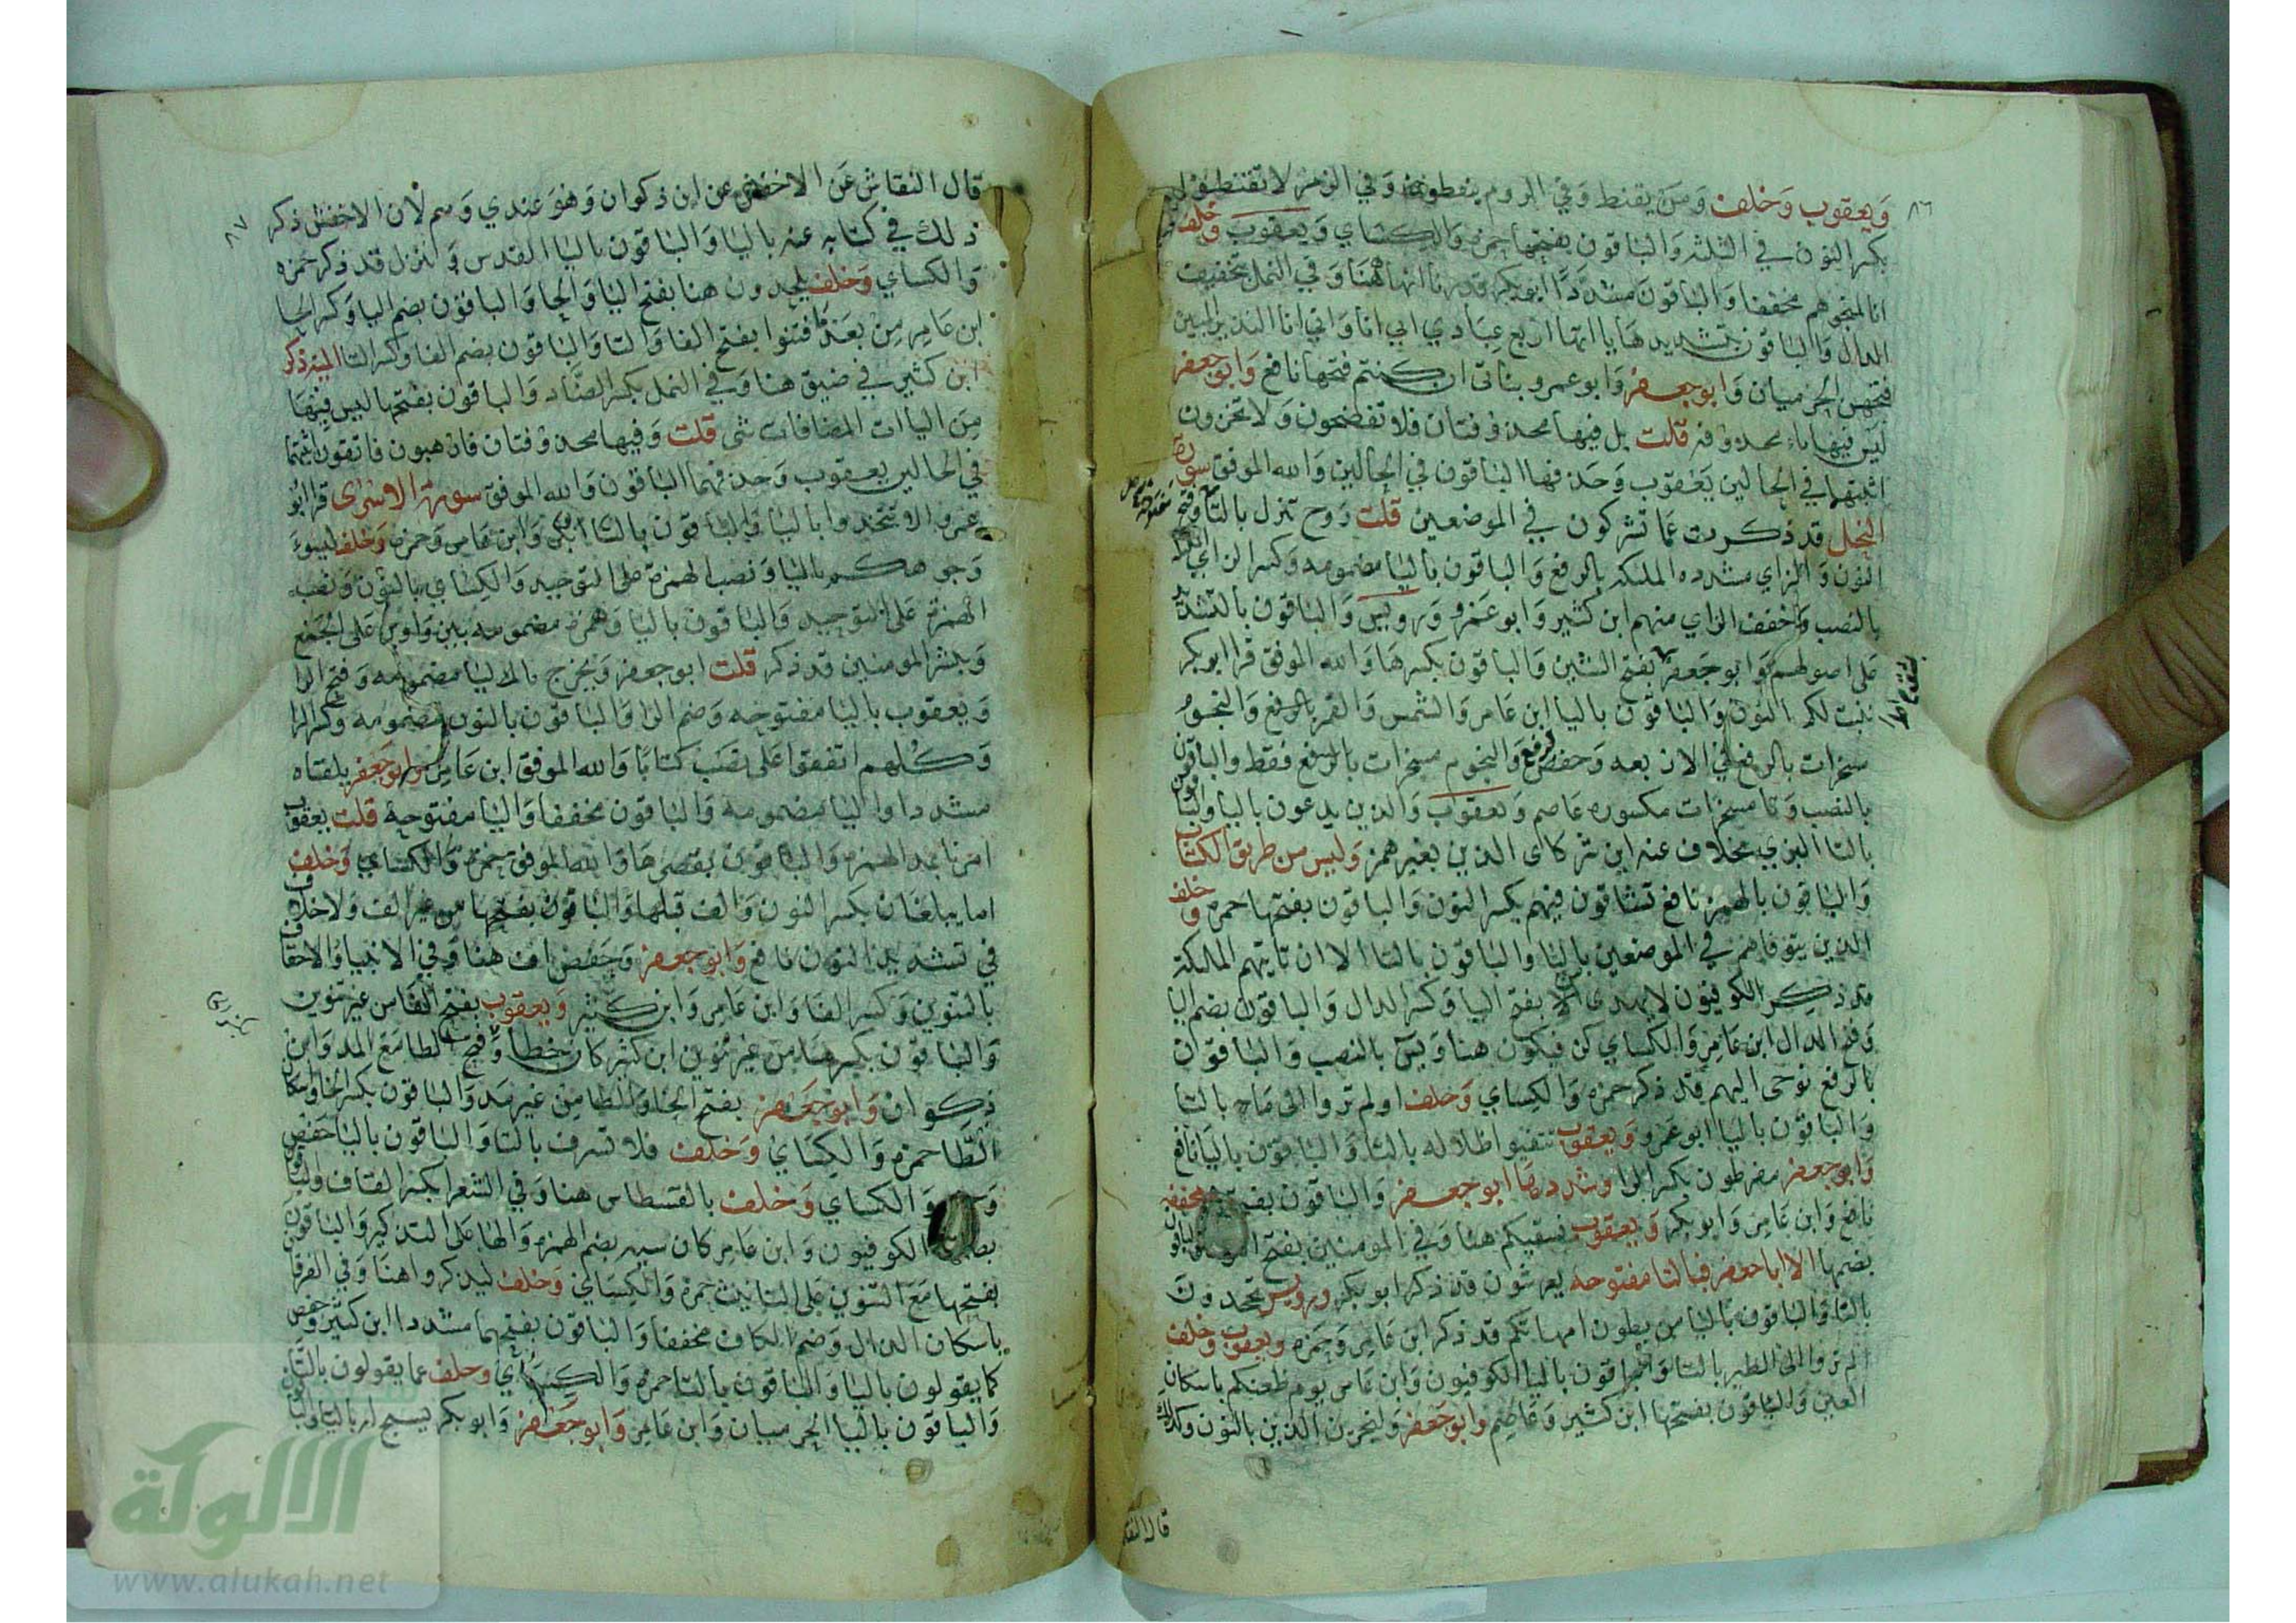 ٨٦
ويعقوب وخلف ومن يقنط وفي الروم يقنطون وفي الزمر لا تقنطوا
بكسر النون في الثلثة والباقون بفتحها حمزه والكساي ويعقوب وخلف
انا لمنجوهم مخففا والباقون مشددا ابو بكر قدرنا انها هنا وفي النمل بتخفيف
الدال والباقون بتشديدها ياآتها اربع عبادي اني انا واني انا النذير المبين
فتحهن الحرميان وابو جعفر وابو عمرو بناتي ان كنتم فتحها نافع وابو جعفر
ليس فيها ياء محذوفه قلت بل فيها محذوفتان فلا تفضحون ولا تخزون
اثبتهما في الحالين يعقوب وحذفها الباقون في الحالين والله الموفق سورة
النحل قد ذكرت عما تشركون في الموضعين قلت روح تنزل بالتا وفتح
النون والزاي مشدده الملئكة بالرفع والباقون باليا مضمومه وكسر الزاي
بالنصب وخفف الزاي منهم ابن كثير وابو عمرو ورويس والباقون بالتشديد
على اصولهم وابو جعفر بفتح الشين والباقون بكسرها والله الموفق قرا ابو بكر
ننبت لكم بالنون والباقون باليا ابن عامر والشمس والقمر بالرفع والنجوم
مسخرات بالرفع في الاربعه وحفص برفع والنجوم مسخرات بالرفع فقط والباقون
بالنصب وتا مسخرات مكسوره عاصم ويعقوب والذين يدعون باليا والباقون
بالتا البزي بخلاف عنه اين شركاى الذين بغير همز وليس من طريق الكتاب
والباقون بالهمز نافع تشاقون فيهم بكسر النون والباقون بفتحها حمزه وخلف
الذين يتوفاهم في الموضعين باليا والباقون بالتا الا ان تاتيهم الملئكة
قد ذكر الكوفيون لا يهدى بفتح اليا وكسر الدال والباقون بضم اليا
وفتح الدال ابن عامر والكساي كن فيكون هنا ويس بالنصب والباقون
بالرفع نوحى اليهم قد ذكر حمزه والكساي وخلف اولم تروا الى ما خ بالتا
والباقون باليا ابو عمرو ويعقوب تتفيو اظلاله بالتا والباقون باليا نافع
وابو جعفر مفرطون بكسر الرا وشددها ابو جعفر والباقون بفتحها مخففه
نافع وابن عامر وابو بكر ويعقوب نسقيكم هنا وفي المومنين بفتح النون والباقون
بضمها الا ابا جعفر فبالتا مفتوحه يعرشون قد ذكر ابو بكر ورويس تجحدون
بالتا والباقون باليا من بطون امهاتكم قد ذكر ابن عامر وحمزه ويعقوب وخلف
الم تروا الى الطير بالتا والباقون باليا الكوفيون وابن عامر يوم ظعنكم باسكان
العين والباقون بفتحها ابن كثير وعاصم وابو جعفر وليجزين الذين بالنون وكذلك
٨٧
قال النقاش عن الاخفش عن ابن ذكوان وهو عندي وهم لان الاخفش ذكر
ذلك في كتابه عنه باليا والباقون باليا القدس وينزل قد ذكر حمزه
والكساي وخلف يلحدون هنا بفتح اليا والحا والباقون بضم اليا وكسر الحا
ابن عامر من بعد ما فتنوا بفتح الفا والتا والباقون بضم الفا وكسر التا الميته ذكر
ابن كثير في ضيق هنا وفي النمل بكسر الضاد والباقون بفتحها ليس فيها
من الياات المضافات شى قلت وفيها محذوفتان فارهبون فاتقون اثبتهما
في الحالين يعقوب وحذفهما الباقون والله الموفق سورة الاسرى قرا ابو
عمرو الا تتخذوا باليا والباقون بالتا ابو بكر وابن عامر وحمزه وخلف ليسوء
وجوهكم باليا ونصب الهمزة على التوحيد والكساي بالنون ونصب
الهمزة على التوحيد والباقون باليا وهمزة مضمومه بين واوين على الجمع
ويبشر المومنين قد ذكر قلت ابو جعفر ويخرج باليا مضمومه وفتح الرا
ويعقوب باليا مفتوحه وضم الرا والباقون بالنون مضمومه وكسر الرا
وكلهم اتفقوا على نصب كتابا والله الموفق ابن عامر وابو جعفر يلقاه
مشددا واليا مضمومه والباقون مخففا واليا مفتوحة قلت يعقوب
امرنا بمد الهمزه والباقون بقصرها والله الموفق حمزه والكساي وخلف
اما يبلغان بكسر النون والف قبلها والباقون بفتحها من غير الف ولا خلاف
في تشديد النون نافع وابو جعفر وحفص اف هنا وفي الانبيا والاحقاف
بالتنوين وكسر الفا وابن عامر وابن كثير ويعقوب بفتح الفا من غير تنوين
والباقون بكسرها من غير تنوين ابن كثير كان خطأ وفتح الطا مع المد وابن
ذكوان وابو جعفر بفتح الخا والطا من غير مد والباقون بكسر الخا واسكان
الطا حمزه والكساي وخلف فلا تسرف بالتا والباقون باليا حفص
والكساي وخلف بالقسطاس هنا وفي الشعرا بكسر القاف والباقون
بضمها الكوفيون وابن عامر كان سيئه بضم الهمزه والها على التذكير والباقون
بفتحها مع التنوين على التانيث حمزة والكساي وخلف ليذكروا هنا وفي الفرقان
باسكان الذال وضم الكاف مخففا والباقون بفتحهما مشددا ابن كثير وحفص
كما يقولون باليا والباقون بالتا حمزه والكساي وخلف عما يقولون بالتا
والباقون باليا الحرميان وابن عامر وابو جعفر وابو بكر يسبح له باليا والباقون
قال النقاش
الالوكة
www.alukah.net